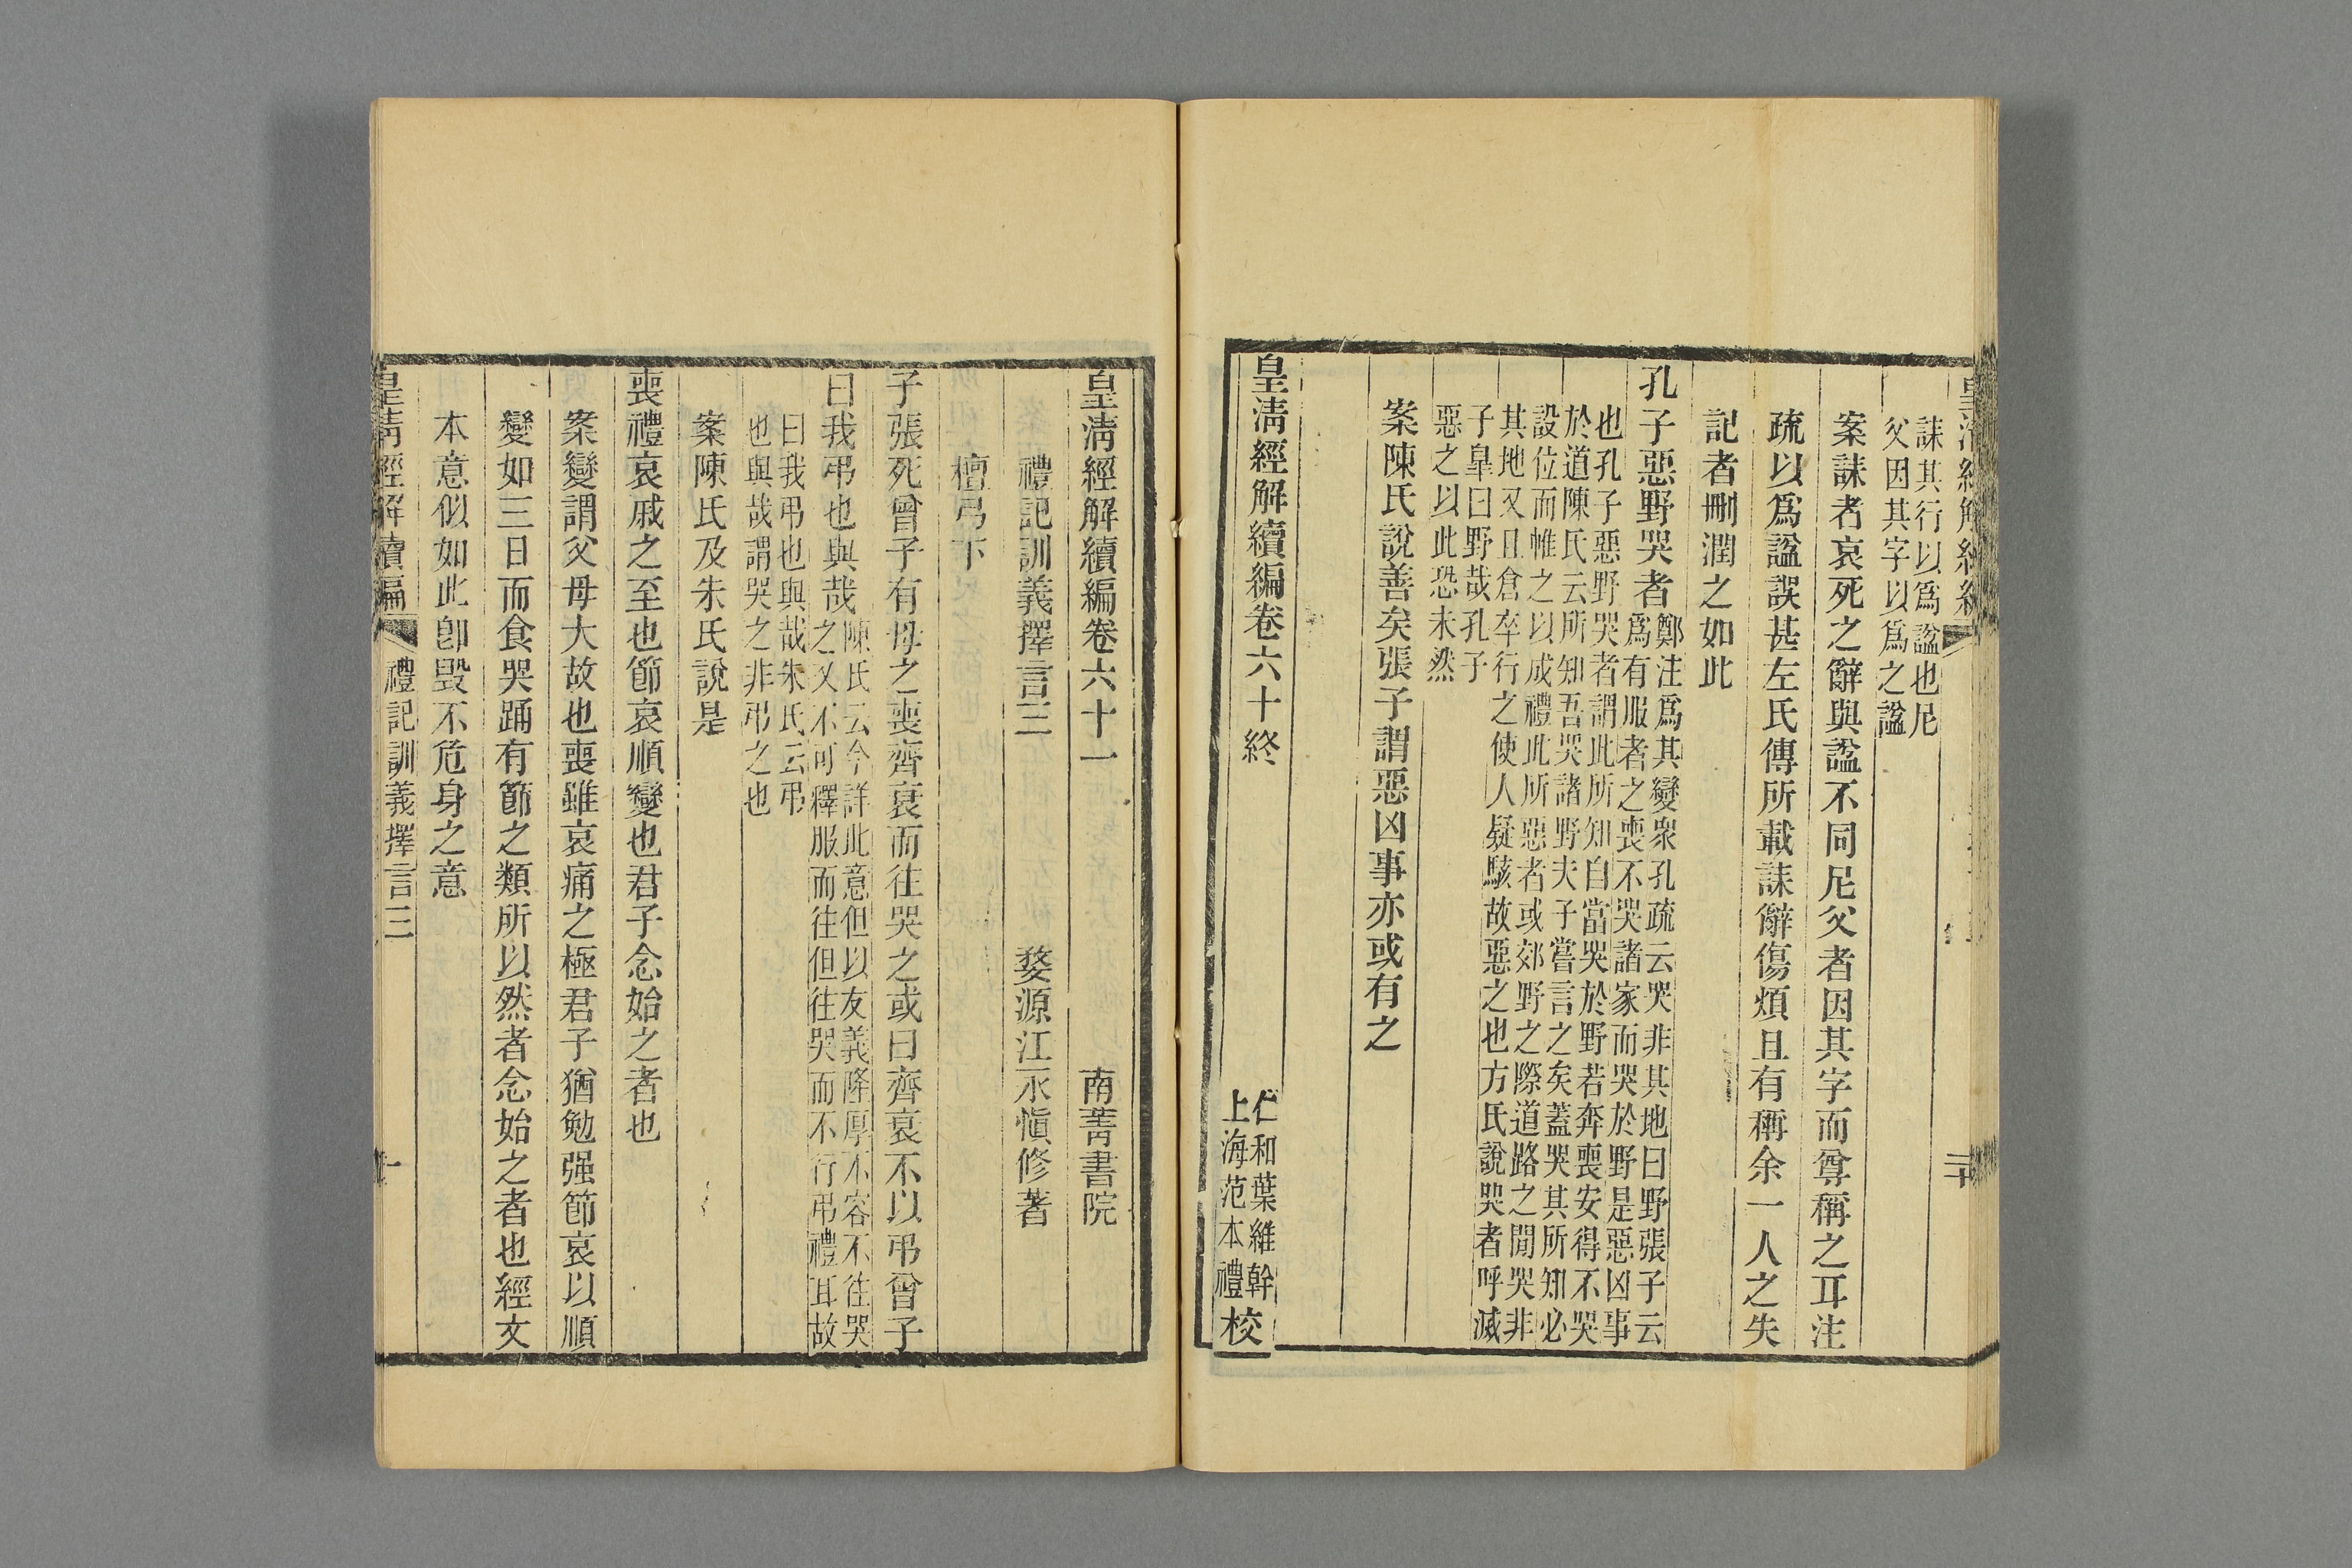 誄其行以爲諡也尼
父因其字以爲之諡
案誄者哀死之辭與諡不同尼父者因其字而尊稱之耳注
疏以爲諡誤甚左氏傳所載誄辭傷煩且有稱余一人之失
記者刪潤之如此
孔子惡野哭者
鄭注爲其變衆孔疏云哭非其地曰野張子云
爲有服者之喪不哭諸家而哭於野是惡凶事
也孔子惡野哭者謂此所知自當哭於野若奔喪安得不哭
於道陳氏云所知吾哭諸野夫子嘗言之矣蓋哭其所知必
設位而帷之以成禮此所惡者或郊野之際道路之閒哭非
其地又且倉卒行之使人疑駭故惡之也方氏說哭者呼滅
子臯曰野哉孔子
惡之以此恐未然
案陳氏說善矣張子謂惡凶事亦或有之
皇淸經解續編卷六十終
仁和葉維幹
上海范本禮
校
皇淸經解續編卷六十一
南菁書院
禮記訓義擇言三
婺源江永愼修著
檀弓下
子張死曾子有母之喪齊衰而往哭之或曰齊衰不以弔曾子
曰我弔也與哉
陳氏云今詳此意但以友義隆厚不容不往哭
之又不可釋服而往但往哭而不行弔禮耳故
曰我弔也與哉朱氏云弔
也與哉謂哭之非弔之也
案陳氏及朱氏說是
喪禮哀戚之至也節哀順變也君子念始之者也
案變謂父母大故也喪雖哀痛之極君子猶勉强節哀以順
變如三日而食哭踊有節之類所以然者念始之者也經文
本意似如此卽毀不危身之意
皇淸經解續編
禮記訓義擇言三
一